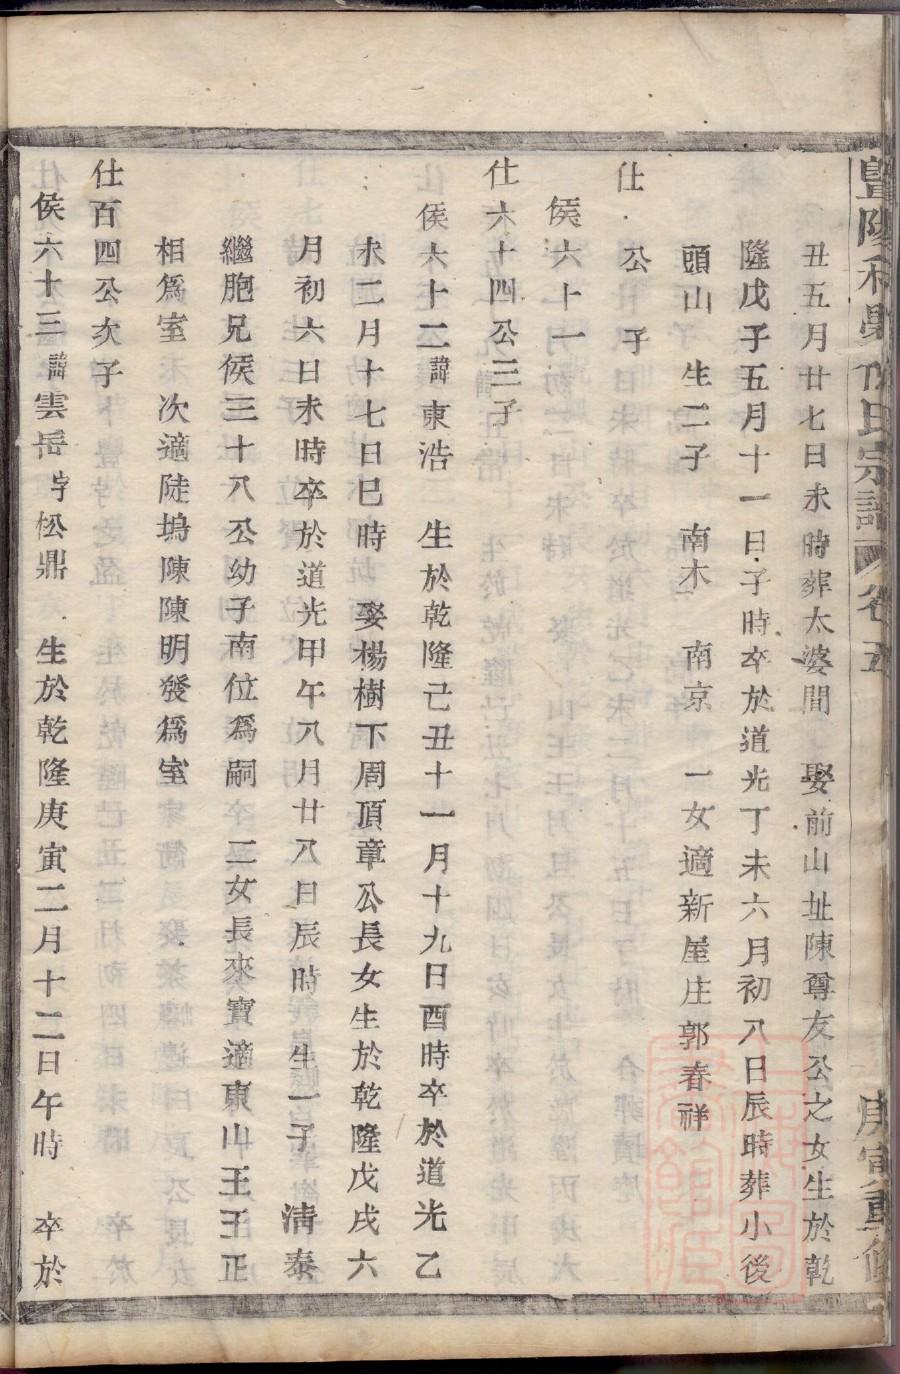 丑五月廿七日未時葬太婆間 娶前山址陳尊友公之女生於乾
隆戊子五月十一日子時卒於道光丁未六月初八日辰時葬小後
頭山 生二子 南木 南京 一女適新屋庄郭春祥
仕 公 子
侯六十一
仕六十四公三子
侯六十二諱東浩 生於乾隆己丑十一月十九日酉時卒於道光乙
未二月十七日巳時 娶楊樹下周頂章公長女生於乾隆戊戌六
月初六日未時卒於道光甲午八月廿八日辰時生一子 清泰
繼胞兄侯三十八公幼子南位爲嗣 二女長來寶適東山王王正
相爲室 次適陡塢陳陳明發爲室
仕百四公次子
侯六十三諱雲岳 松鼎 生於乾隆庚寅二月十二日午時 卒於
暨陽 氏宗譜 卷五 庚寅重修